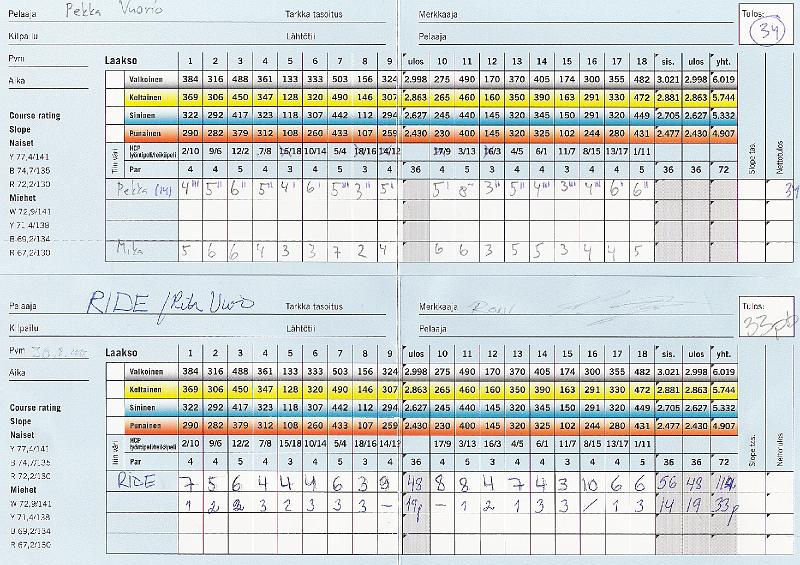 Pelaaja Pekka Vuorio Tarkka tasoitus Merkkaaja Tulos: 34
Kilpailu Lähtötii Pelaaja
Pvm Laakso 1 2 3 4 5 6 7 8 9 ulos 10 11 12 13 14 15 16 17 18 sis. ulos yht.
Aika Valkoinen 384 316 488 361 133 333 503 156 324 2.998 275 490 170 370 405 174 300 355 482 3.021 2.998 6.019
Keltainen 369 306 450 347 128 320 490 146 307 2.863 265 460 160 350 390 163 291 330 472 2.881 2.863 5.744
Course rating Sininen 322 292 417 323 118 307 442 112 294 2.627 245 440 145 320 345 150 291 330 439 2.705 2.627 5.332
Slope Punainen 290 282 379 312 108 260 433 107 259 2.430 230 400 145 320 325 102 244 280 431 2.477 2.430 4.907
Naiset HCP lyöntipeli/reikäpeli 2/10 9/6 12/2 7/8 15/18 10/14 5/4 18/16 14/12 17/9 3/13 16/3 4/5 6/1 11/7 8/15 13/17 1/11 Slope tas. Nettotulos
Y 77,4/141 Tiin väri Par 4 4 5 4 3 4 5 3 4 36 4 5 3 4 4 3 4 4 5 36 36 72
B 74,7/135
R 72,2/130 Pekka (14) 4 5 6 5 4 6 5 3 5 5 8 3 5 4 3 4 6 6 34
Miehet
W 72,9/141
Y 71,4/138
B 69,2/134
R 67,2/130 Mika 5 6 6 4 3 3 7 2 4 6 6 3 5 5 3 4 4 5
Pelaaja RIDE / Tarkka tasoitus Merkkaaja Tulos:
Kilpailu Lähtötii Pelaaja 33
Pvm Laakso 1 2 3 4 5 6 7 8 9 ulos 10 11 12 13 14 15 16 17 18 sis. ulos yht.
Aika Valkoinen 384 316 488 361 133 333 503 156 324 2.998 275 490 170 370 405 174 300 355 482 3.021 2.998 6.019
Keltainen 369 306 450 347 128 320 490 146 307 2.863 265 460 160 350 390 163 291 330 472 2.881 2.863 5.744
Course rating Sininen 322 292 417 323 118 307 442 112 294 2.627 245 440 145 320 345 150 291 330 439 2.705 2.627 5.332
Slope Punainen 290 282 379 312 108 260 433 107 259 2.430 230 400 145 320 325 102 244 280 431 2.477 2.430 4.907
Naiset HCP lyöntipeli/reikäpeli 2/10 9/6 12/2 7/8 15/18 10/14 5/4 18/16 14/12 17/9 3/13 16/3 4/5 6/1 11/7 8/15 13/17 1/11 Slope tas. Nettotulos
Y 77,4/141 Tiin väri Par 4 4 5 4 3 4 5 3 4 36 4 5 3 4 4 3 4 4 5 36 36 72
B 74,7/135
R 72,2/130 RIDE 7 5 6 4 4 4 6 3 9 48 8 8 4 7 4 3 10 6 6 56 48
Miehet
W 72,9/141 1 2 2 3 2 3 3 3 – 19p – 1 2 1 3 3 / 1 3 14 19 33p
Y 71,4/138
B 69,2/134
R 67,2/130